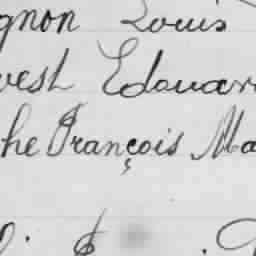 gnon Louis
vest Edouar
he François Ma